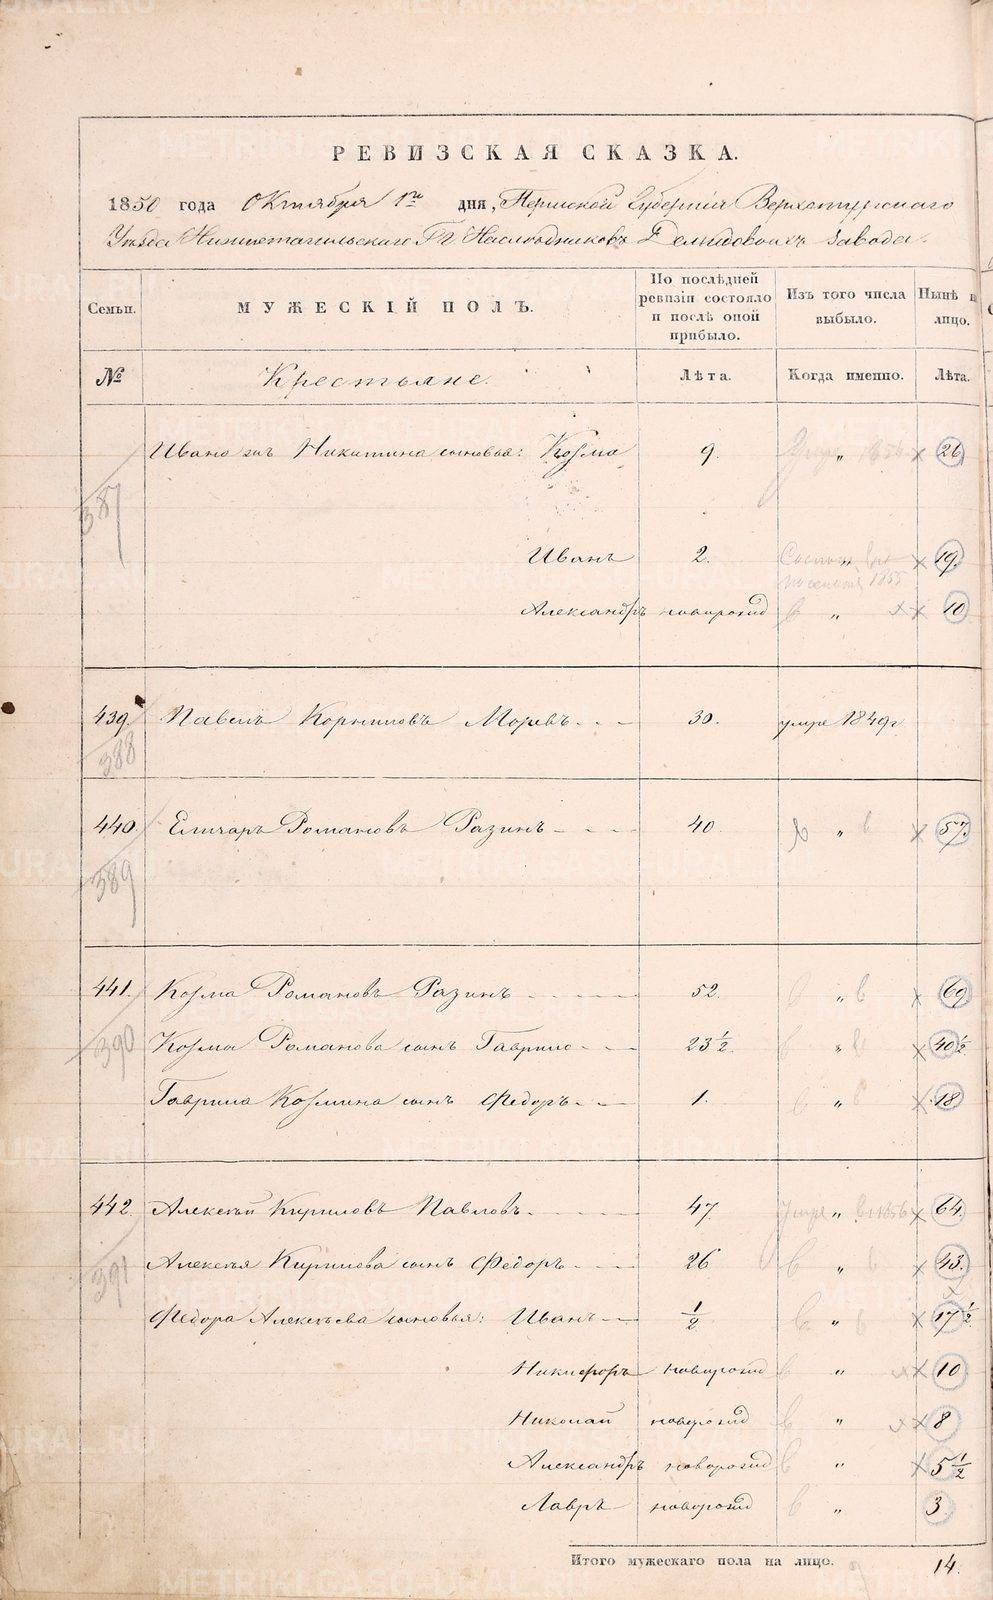 РЕВИЗСКАЯ СКАЗКА.
1850 года Октября 1го дня, Пермской Губернiи Верхотурскаго
Уѣзда Нижнетагильскаго Гг. Наслѣдниковъ Демидовыхъ завода.
Семьи. МУЖЕСКІЙ ПОЛЪ. По послѣдней ревизіи состояло и послѣ оной прибыло. Изъ того числа выбыло. Нынѣ на лицо.
№ Крестьяне. Лѣта. Когда именно. Лѣта.
387
Никитина сыновья: Козма 9. Умре " 1856 × 26
Иванъ 2. " 1855 × 19.
Александръ новорожд в " × × 10
439. Павелъ Корниловъ Моревъ 30. умре 1849 г.
388
440 Елизаръ Романовъ Разинъ 40. " в × 57.
389
441. Козма Романовъ Разинъ 52. в " в × 69
390 Козма Романова сынъ Гаврило 23 1/2. в " в × 40 1/2
Гаврила Козмина сынъ Федоръ 1. в " в × 18
442 Алексѣй Кириловъ Павловъ 47. Умре " в 1856 × 64.
391 Алексѣя Кирилова сынъ Федоръ 26 в " в × 43.
Федора Алексѣева сыновья: Иванъ 1/2 в " в × 17 1/2
Никифоръ новорожд в " × × 10
Николай новорожд в " × × 8
Александръ новорожд в " × 5 1/2
Лавръ новорожд в " 3.
Итого мужескаго пола на лицо. 14.
METRIKI.GASO-URAL.RU